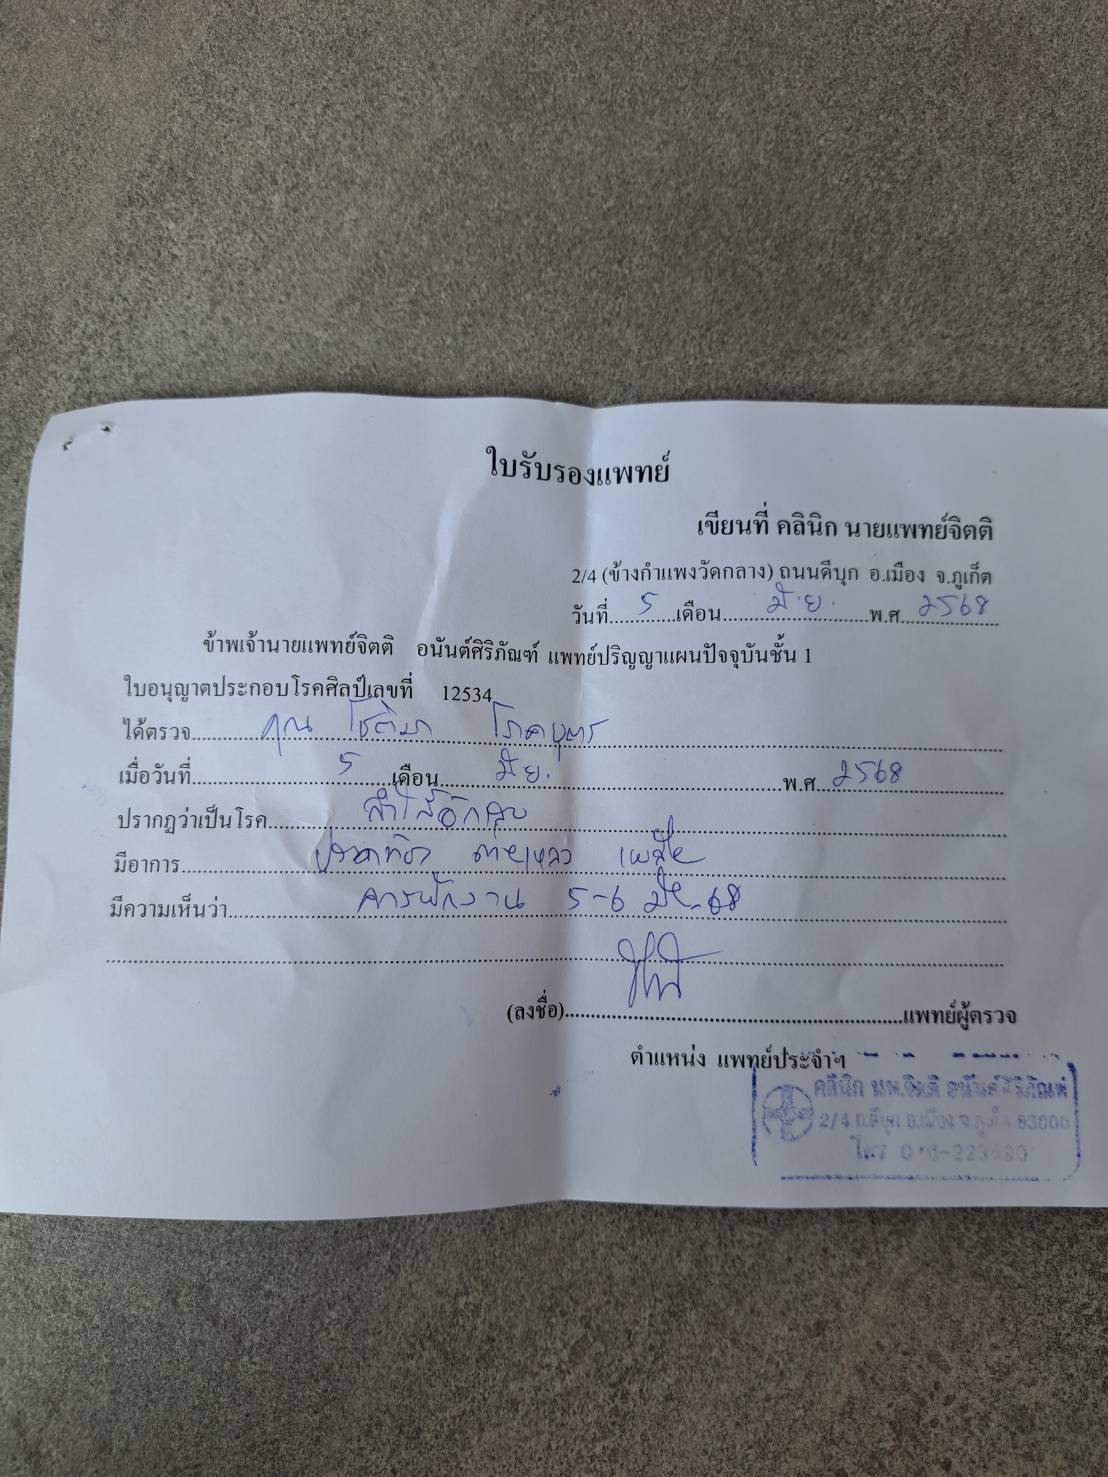 ใบรับรองแพทย์
เขียนที่ คลินิก นายแพทย์จิตติ
2/4 (ข้างกำแพงวัดกลาง) ถนนดีบุก อ.เมือง จ.ภูเก็ต
วันที่ 5 เดือน มิ.ย. พ.ศ. 2568
ข้าพเจ้านายแพทย์จิตติ อนันต์ศิริภัณฑ์ แพทย์ปริญญาแผนปัจจุบันชั้น 1
ใบอนุญาตประกอบโรคศิลป์เลขที่ 12534
ได้ตรวจ คุณ โชติมา โภคบุตร
เมื่อวันที่ 5 เดือน มิ.ย. พ.ศ. 2568
ปรากฏว่าเป็นโรค ลำไส้อักเสบ
มีอาการ ปวดท้อง ถ่ายเหลว เพลีย
มีความเห็นว่า ควรพักงาน 5-6 มิ.ย. 68
(ลงชื่อ) แพทย์ผู้ตรวจ
ตำแหน่ง แพทย์ประจำฯ
คลินิก นพ.จิตติ อนันต์ศิริภัณฑ์
2/4 ถ.ดีบุก อ.เมือง จ.ภูเก็ต 83000
โทร